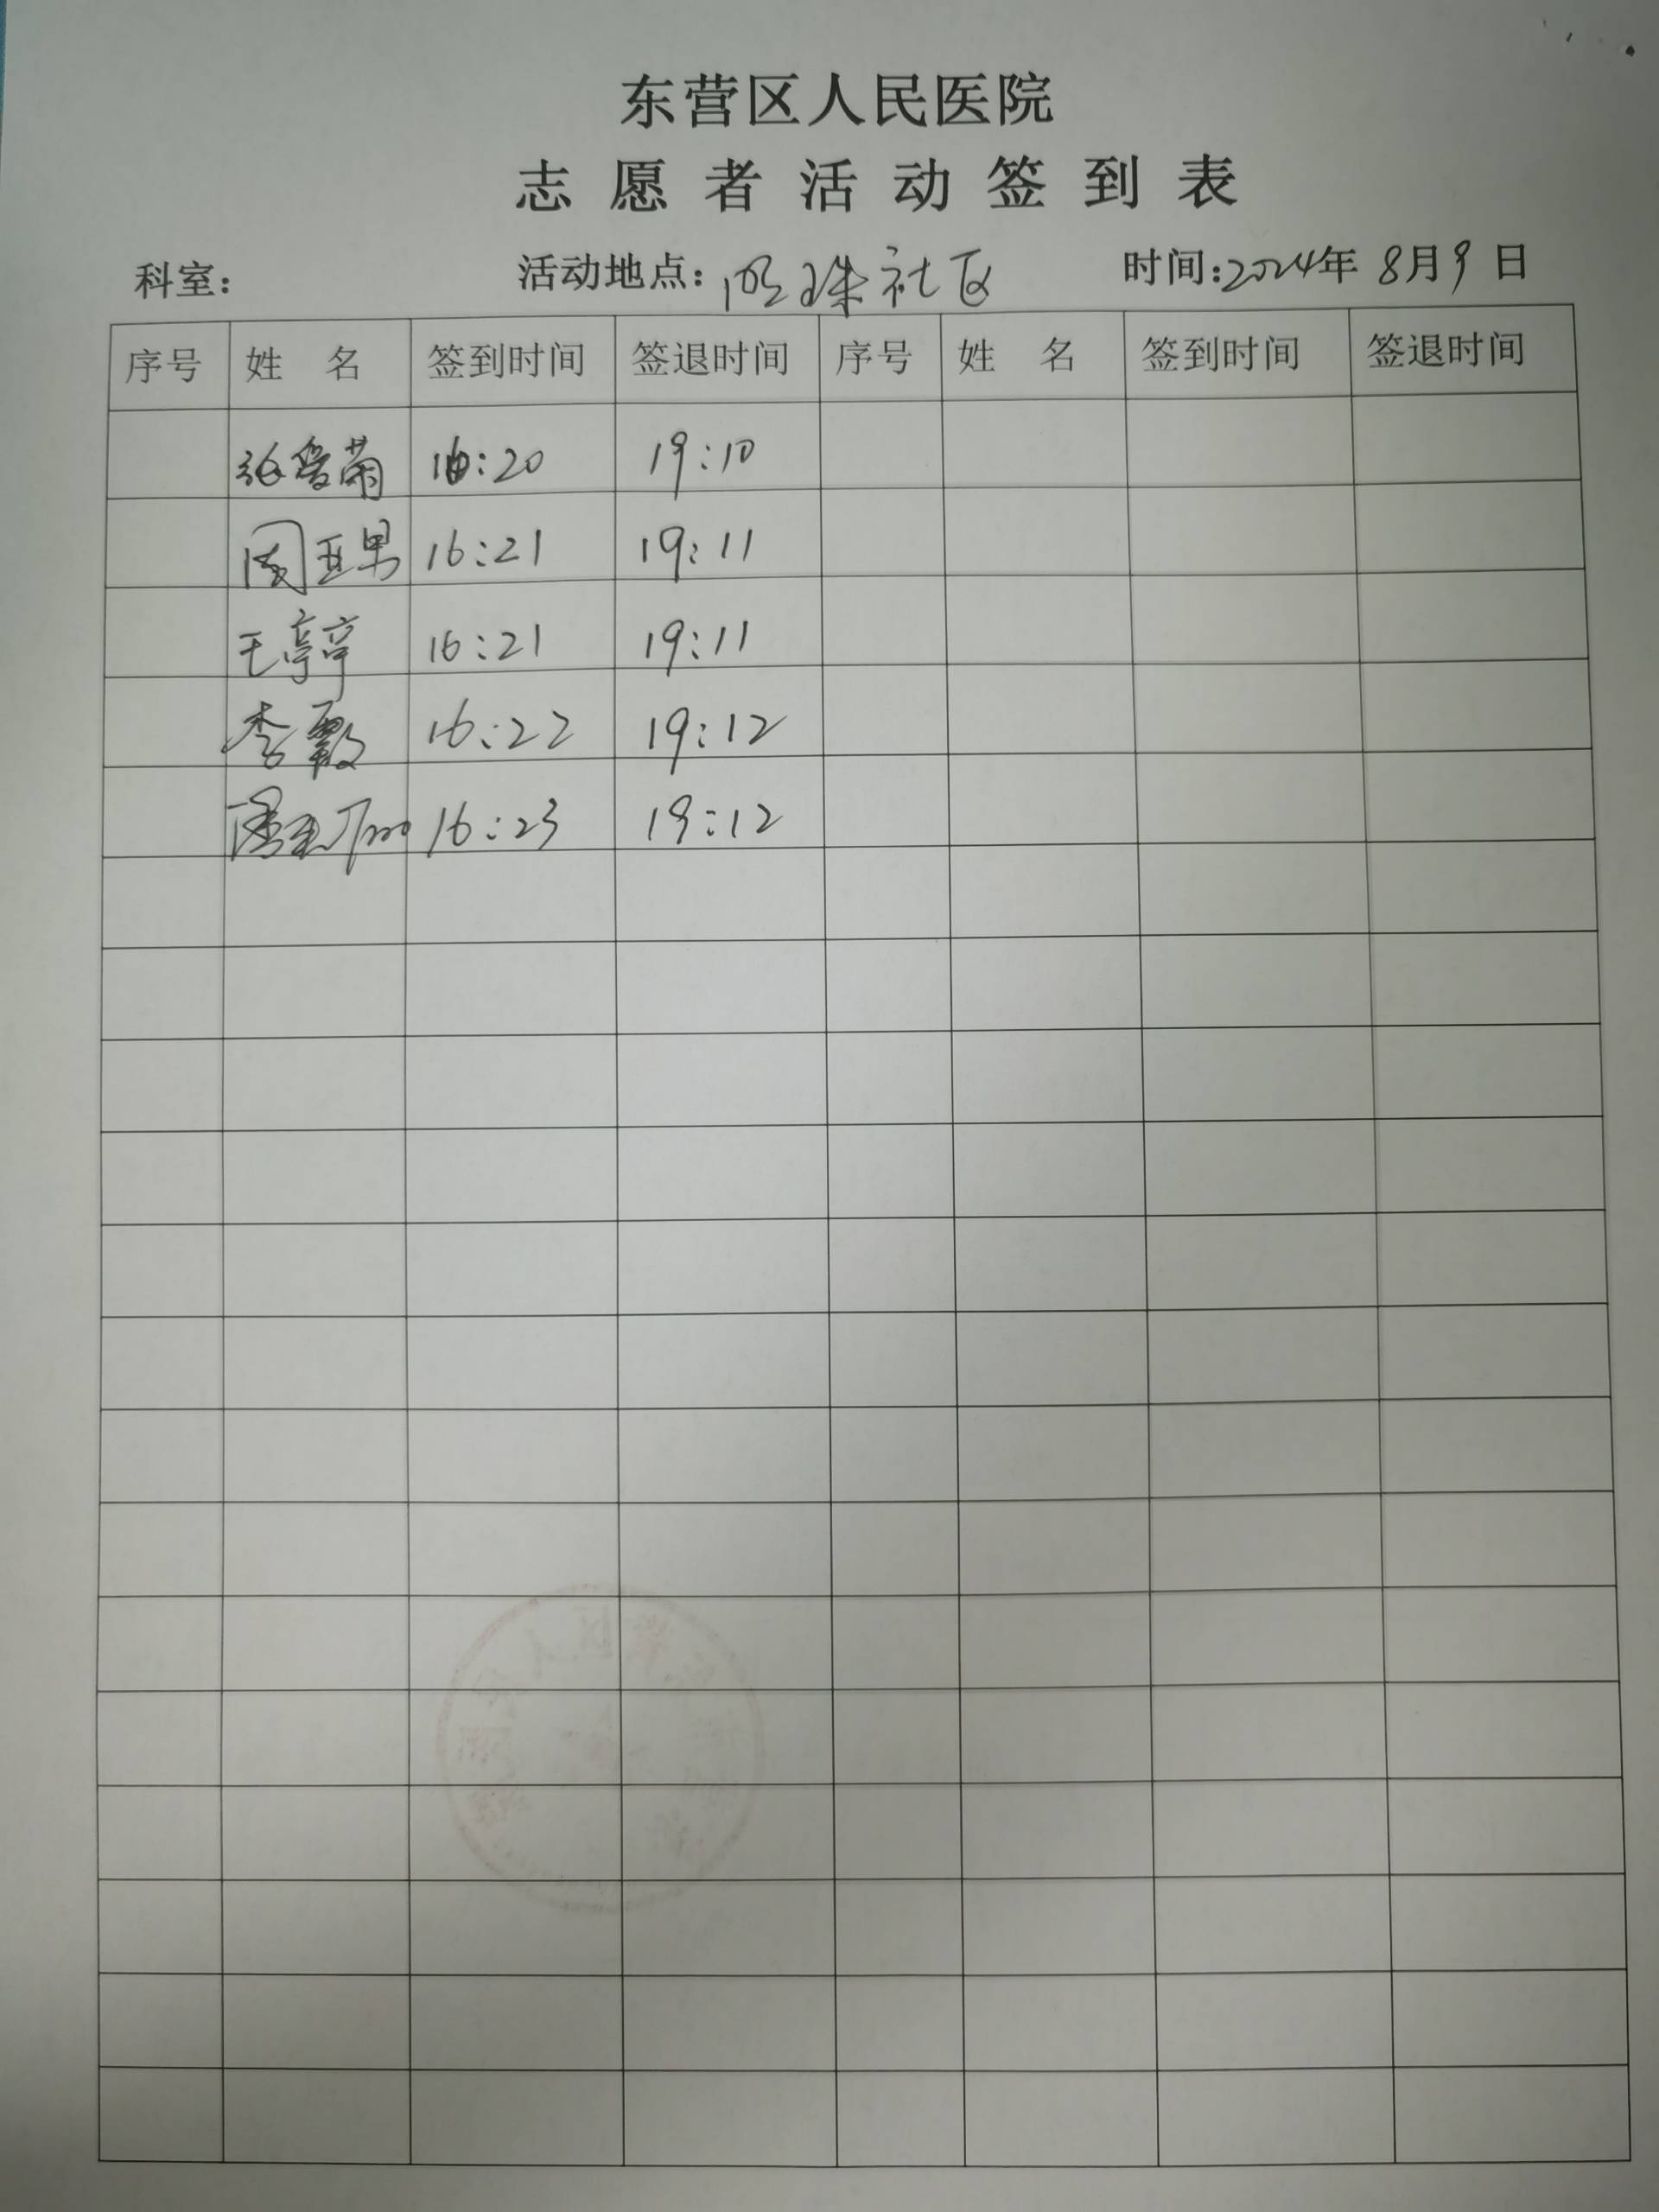 东营区人民医院
志愿者活动签到表
科室： 活动地点：明珠社区 时间：2024年8月9日
序号 姓名 签到时间 签退时间 序号 姓名 签到时间 签退时间
张爱菊 16:20 19:10
周亚男 16:21 19:11
王亭亭 16:21 19:11
李霞 16:22 19:12
16:23 19:12